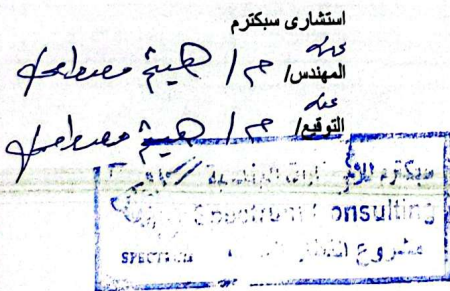 استشارى سبكترم
عنه
المهندس/ م / هيثم مصطفى
عنه
التوقيع/ م / هيثم مصطفى
سبكترم للاستشارات الهندسية
Spectrum Consulting
SPECTRUM
مشروع القطار